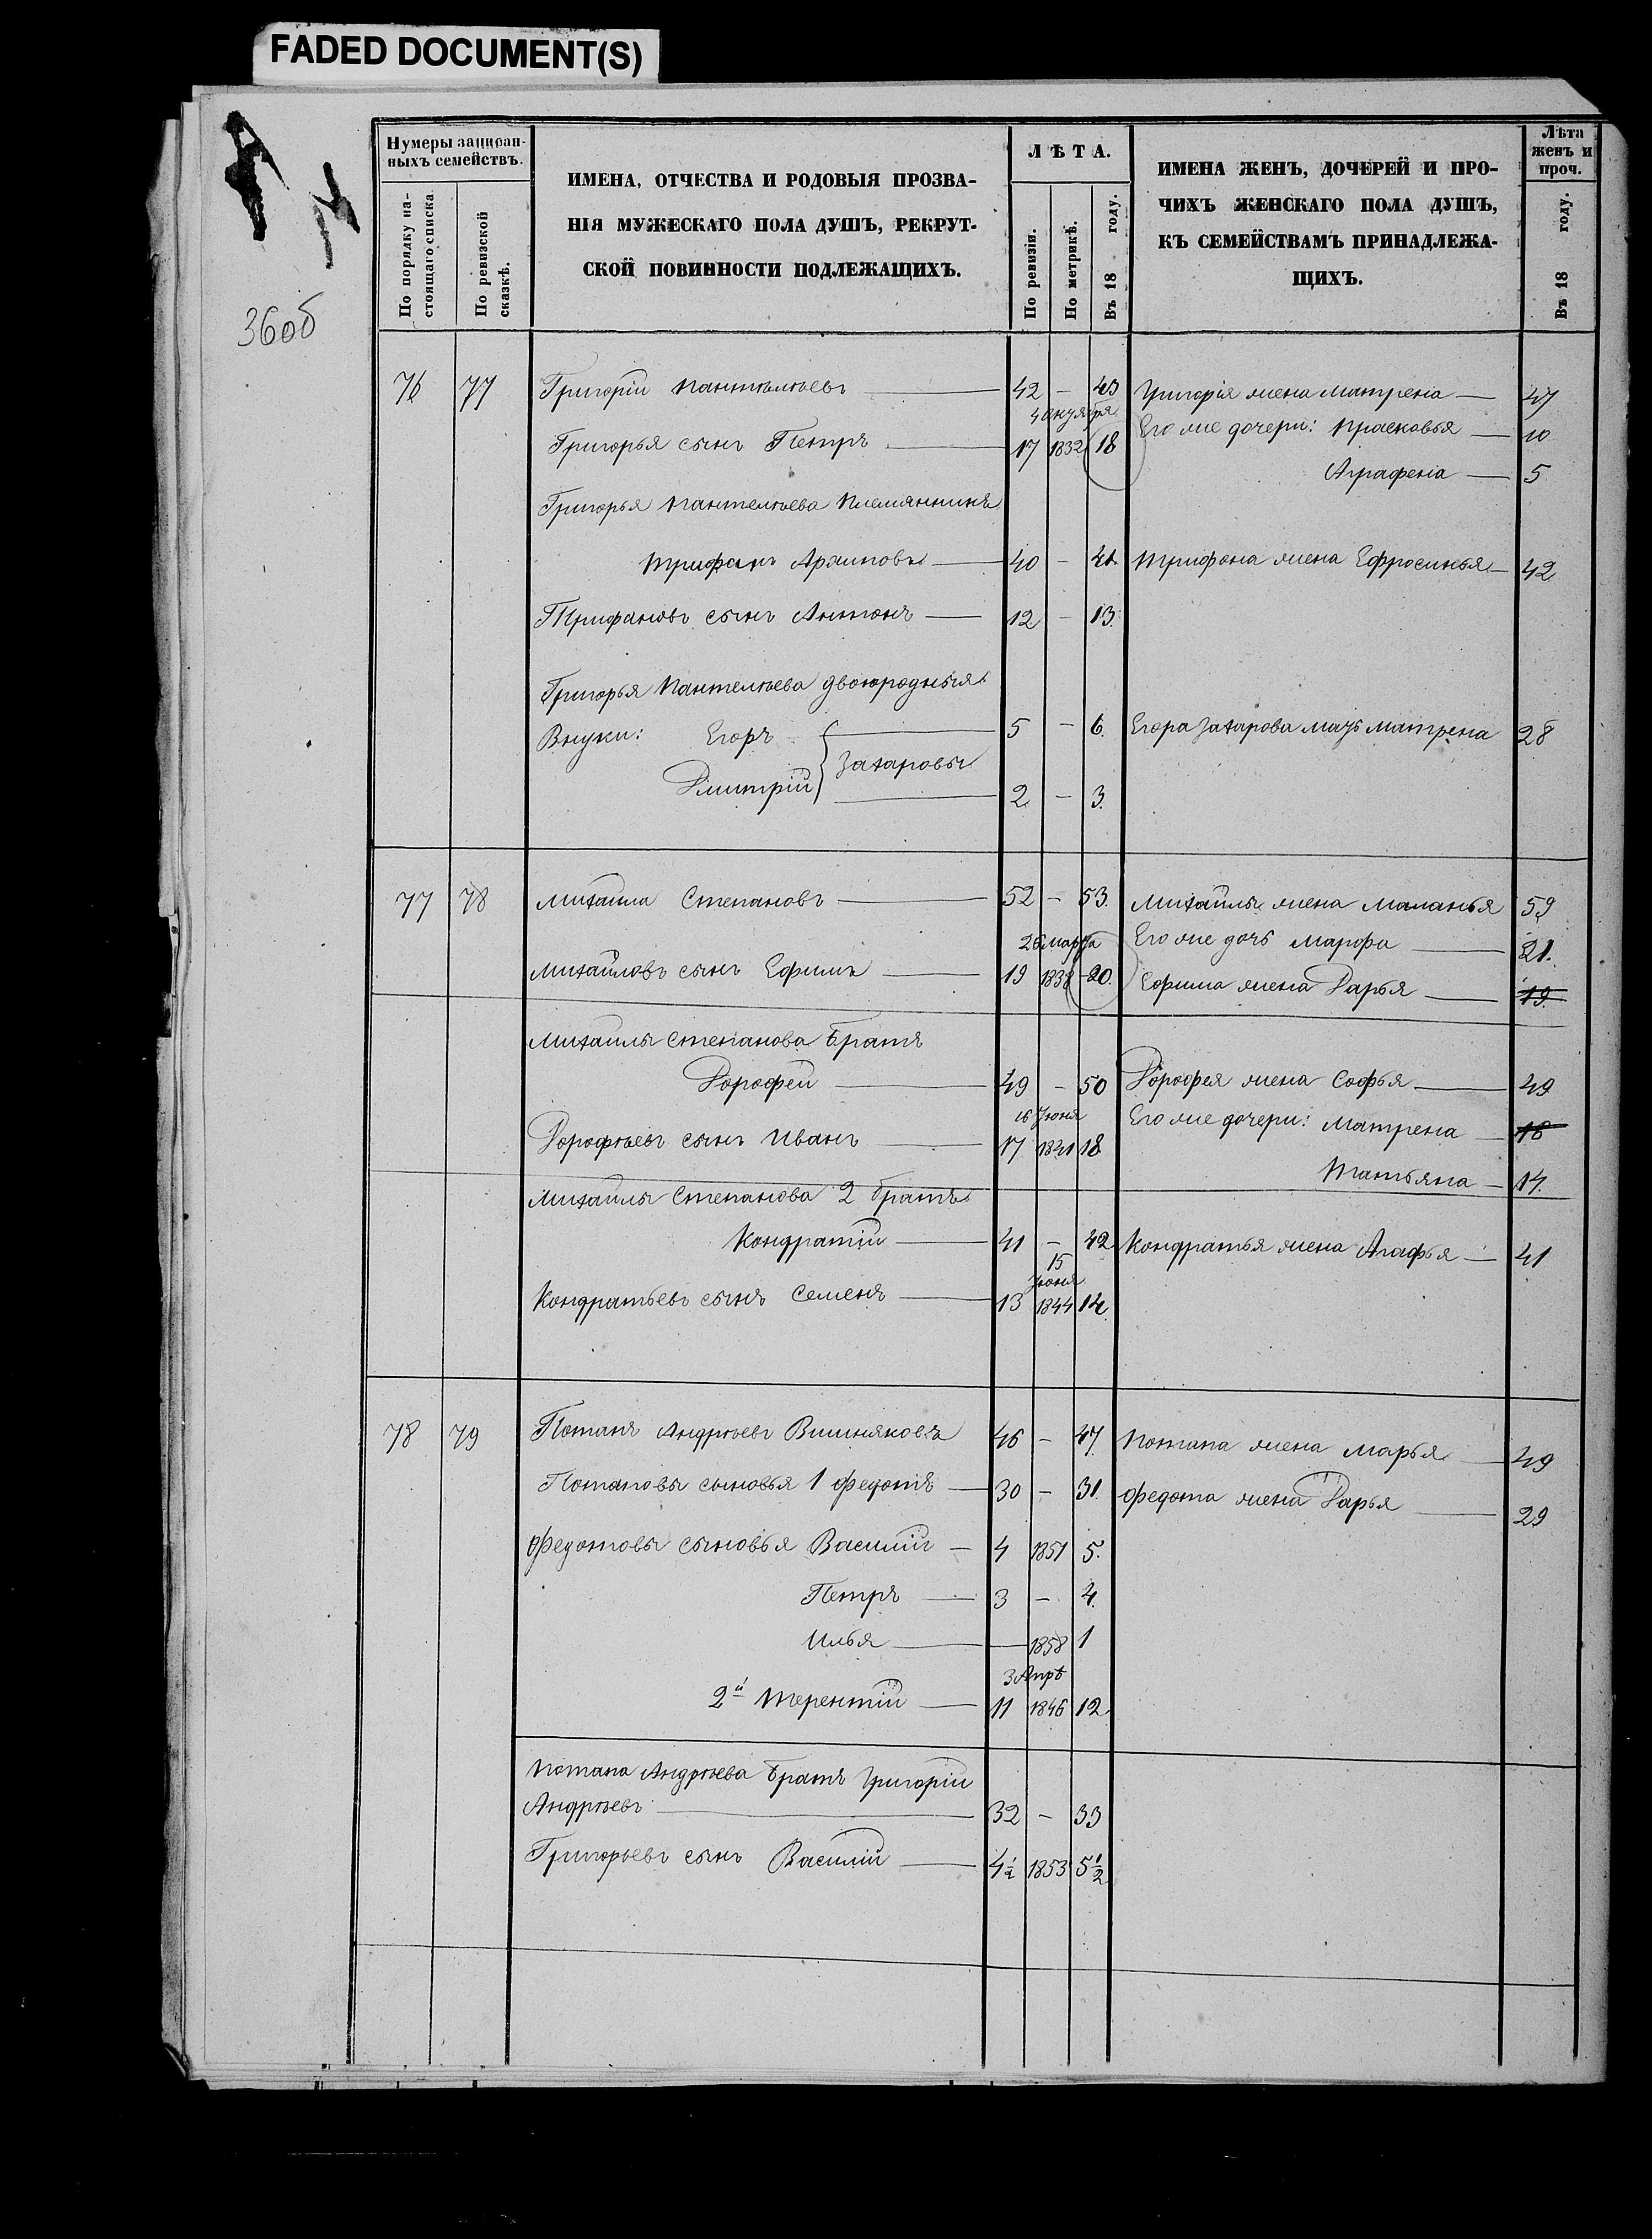 FADED DOCUMENT(S)
36об
Нумеры записан-
ныхъ семействъ.
По порядку на-
стоящаго списка
По ревизской
сказкѣ.
ИМЕНА, ОТЧЕСТВА И РОДОВЫЯ ПРОЗВА-
НІЯ МУЖЕСКАГО ПОЛА ДУШЪ, РЕКРУТ-
СКОЙ ПОВИННОСТИ ПОДЛЕЖАЩИХЪ.
ЛѢТА.
По ревизіи.
По метрикѣ.
Въ 18 году.
ИМЕНА ЖЕНЪ, ДОЧЕРЕЙ И ПРО-
ЧИХЪ ЖЕНСКАГО ПОЛА ДУШЪ,
КЪ СЕМЕЙСТВАМЪ ПРИНАДЛЕЖА-
ЩИХЪ.
Лѣта
женъ и
проч.
Въ 18 году.
76 77 Григорій Пантелѣевъ — 42 — 43 Григорія жена Матрена — 47
Григорья сынъ Петръ — 17 1832 18 Его же дочери: Прасковья — 10
Аграфена — 5
Григорья Пантелѣева племянникъ
Трифанъ Архиповъ — 40 — 41 Трифона жена Ефросинья — 42
Трифановъ сынъ Антонъ — 12 — 13.
Григорья Пантелѣева двоюродныя
Внуки: Егоръ — 5 — 6. Егора Захарова мать Матрена 28
Захаровы
Дмитрій — 2 — 3.
77 78 Михаила Степановъ — 52 — 53. Михайлы жена Маланья 59
26 марта Его же дочь Марфа — 21.
Михайловъ сынъ Ефимъ — 19 1838 20. Ефима жена Дарья — 19.
Михайлы Степанова братъ
Дорофей — 49 — 50 Дорофея жена Софья — 49
16 Іюня Его же дочери: Матрена — 18
Дорофѣевъ сынъ Иванъ — 17 1841 18
Татьяна — 14.
Михайлы Степанова 2 братъ
Кондратій — 41 — 42 Кондратья жена Агафья — 41
15
Іюня
Кондратьевъ сынъ Семенъ — 13 1844 14
78 79 Потапъ Андрѣевъ Вишняковъ 46 — 47. Потапа жена Марья — 49
Потаповы сыновья 1 Федотъ — 30 — 31. Федота жена Дарья — 29
Федотовы сыновья Василій — 4 1851 5.
Петръ — 3 — 4.
Илья — — 1858 1
3 Апрѣ
2й Терентій — 11 1846 12
Потапа Андрѣева братъ Григорій
Андрѣевъ — 32 — 33
Григорьевъ сынъ Василій — 4½ 1853 5½